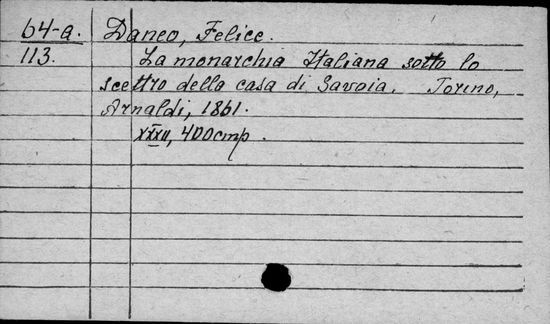 64-a. Daneo, Felice.
113. La monarchia Italiana sotto lo
scettro della casa di Savoia. Torino,
Arnaldi, 1861.
XXXII, 400cmp.